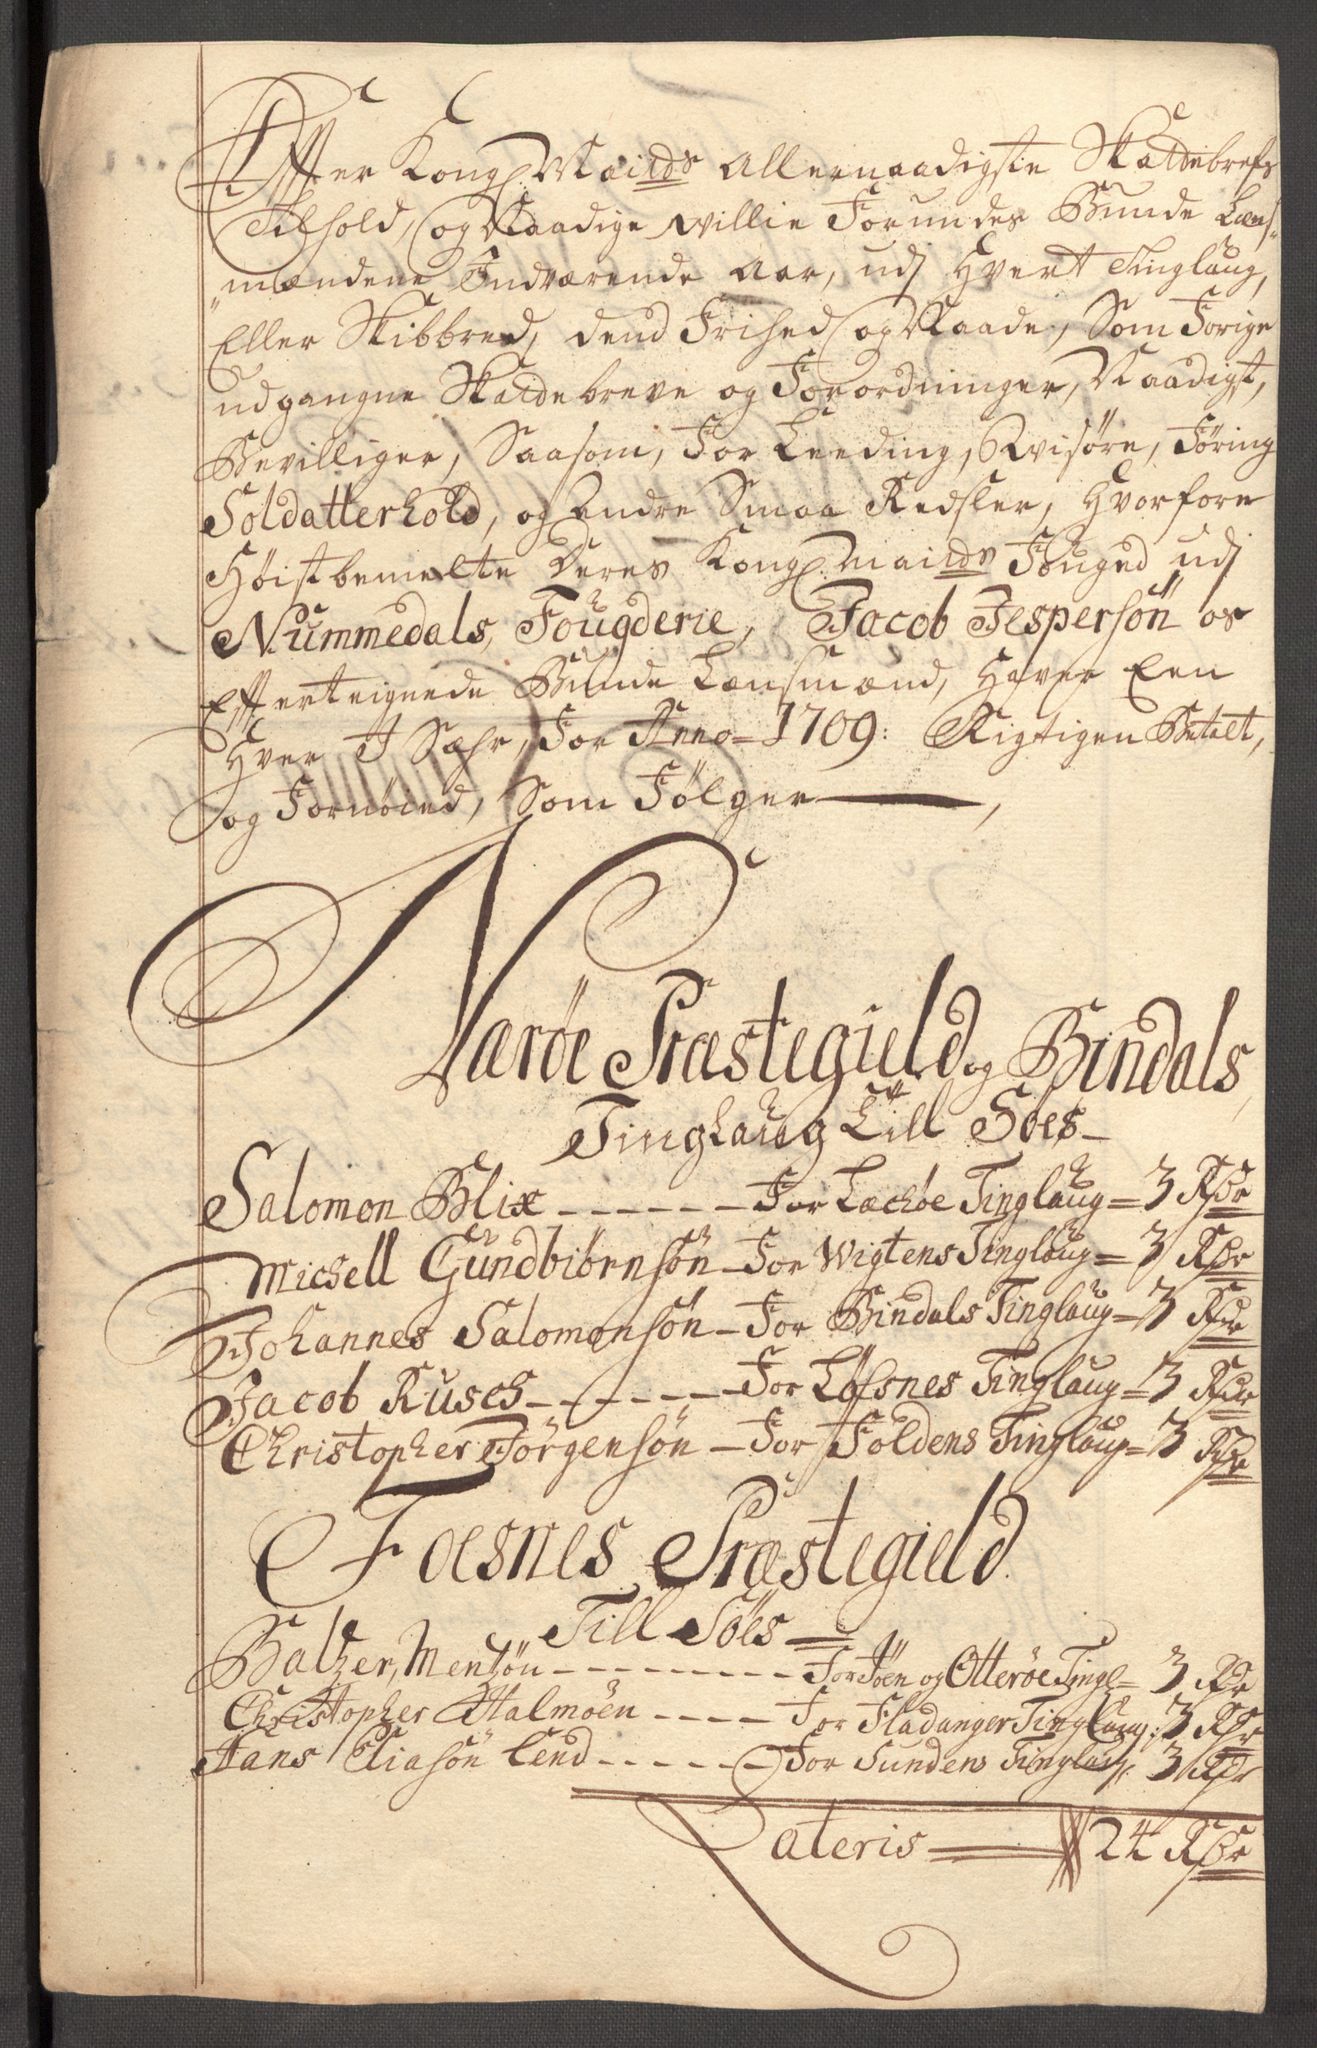 Effter Kong Maids Allernaadigste Skattebrefs
Tilhold, og Naadige Willie Forundes Bunde Læns-
mændene Indværende Aar, udj Hvert Tinglaug,
Eller Skibbred, dend Frihed og Naade, Som Forige
udgangne Skattebreve og Forordninger, Naadigst,
Bevilliger, Saasom, For Leeding, Wisøre, Føring
Soldatterhold, og Andre Smaa Redsler, Hvorfore
Høistbemelte Deres Kong Maids Fouged udj
Nummedals Fougderie, Jacob Jespersøn os
Effterteignede Bunde Lænsmænd, Haver Een
Hver I Sæhr, For Anno = 1709: Rigtigen Betalt,
og Fornøied, Som Følger
Nærøe Præstegield og Bindals
Tinglaug Till Søes
Salomon Blix - - - - - - For Lechøe Tinglaug = 3 Rdr
Michell Gundbiørnsøn - For Wigtens Tinglaug = 3 Rdr
Johannes Salomonsøn - For Bindals Tinglaug = 3 Rdr
Jacob Rusch - - - - - - For Løfsnes Tinglaug = 3 Rdr
Christopher Jørgensøn - For Foldens Tinglaug = 3 Rdr
Foesnes Præstegield
Till Søes
Baltzer Mentzøn - - - - - - - - For Jøen og Otterøe Tingl = 3 Rdr
Christopher Halmøen - - - - For Fladanger Tinglaug: 3 Rdr
Hans Eliasøn Lend - - - - - - For Sundens Tinglaug: 3 Rdr
Lateris 24 Rdr